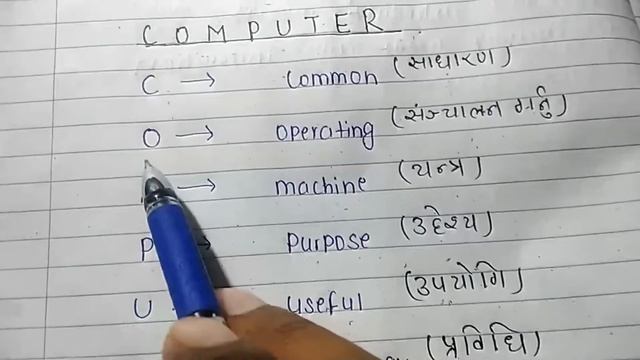 COMPUTER
C → Common (साधारण)
O → Operating (सञ्चालन गर्नु)
→ machine (यन्त्र)
P → Purpose (उद्देश्य)
U useful (उपयोगि)
(प्रविधि)